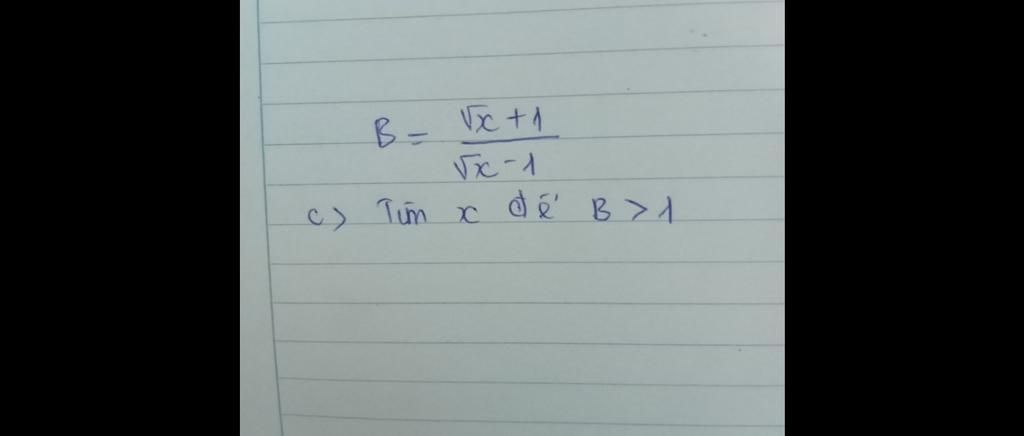 B = √x + 1 / √x - 1
c) Tìm x để B > 1